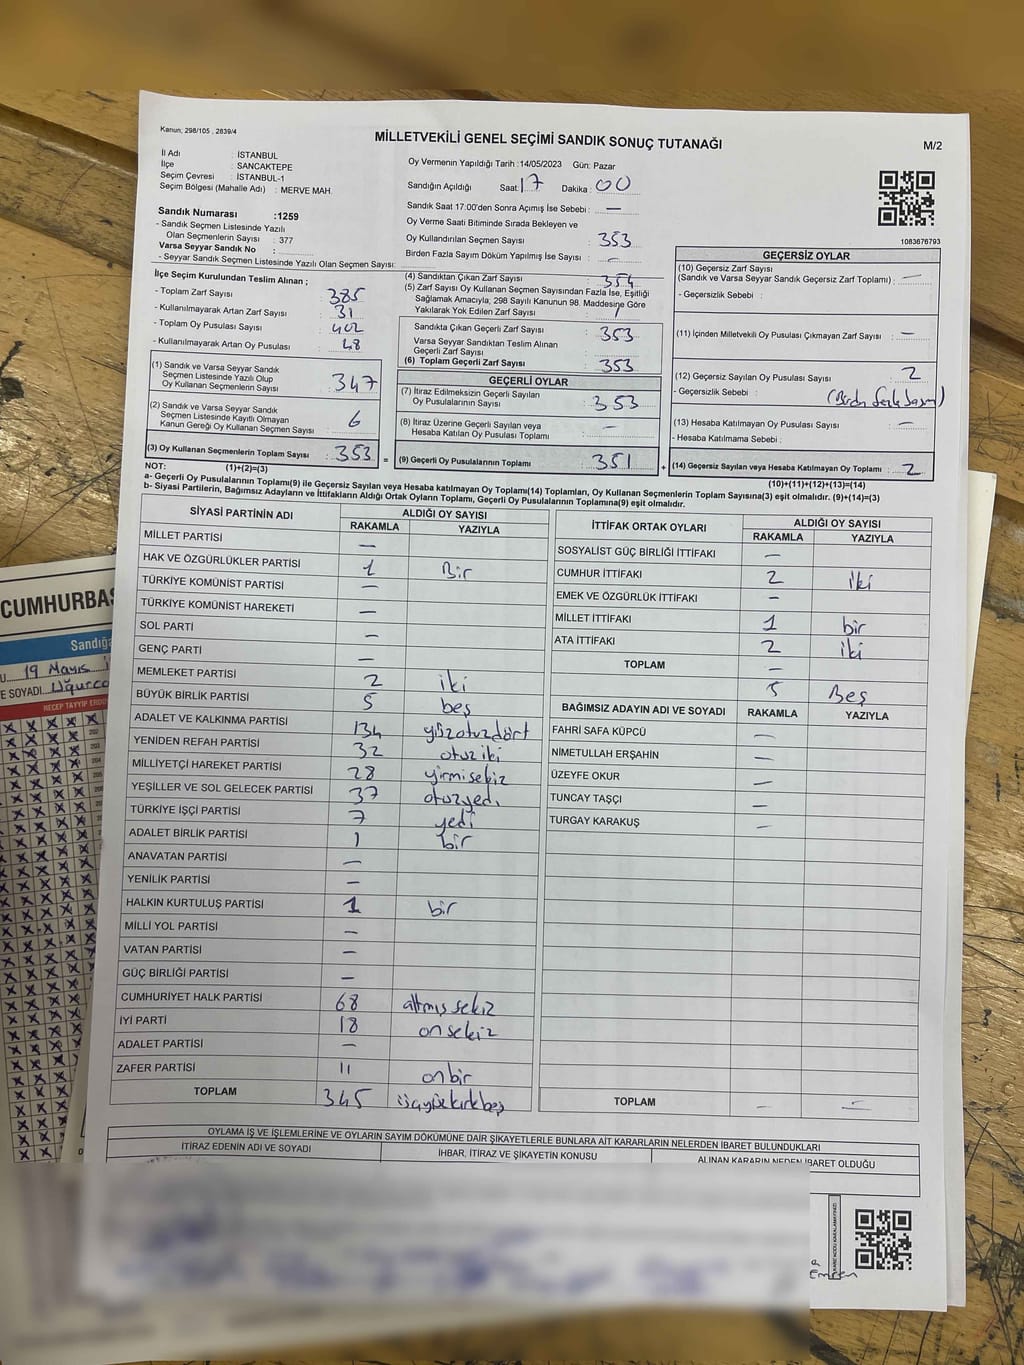 Kanun; 298/105 , 2839/4
MİLLETVEKİLİ GENEL SEÇİMİ SANDIK SONUÇ TUTANAĞI
M/2
İl Adı : İSTANBUL
İlçe : SANCAKTEPE
Seçim Çevresi : İSTANBUL-1
Seçim Bölgesi (Mahalle Adı) : MERVE MAH.
Oy Vermenin Yapıldığı Tarih :14/05/2023 Gün: Pazar
Sandığın Açıldığı Saat: 17 Dakika : 00
Sandık Saat 17:00'den Sonra Açımış İse Sebebi : —
Sandık Numarası :1259
- Sandık Seçmen Listesinde Yazılı
Olan Seçmenlerin Sayısı : 377
Varsa Seyyar Sandık No :
- Seyyar Sandık Seçmen Listesinde Yazılı Olan Seçmen Sayısı:
Oy Verme Saati Bitiminde Sırada Bekleyen ve
Oy Kullandırılan Seçmen Sayısı : 353
Birden Fazla Sayım Döküm Yapılmış İse Sayısı : —
1083676793
İlçe Seçim Kurulundan Teslim Alınan ;
- Toplam Zarf Sayısı : 385
- Kullanılmayarak Artan Zarf Sayısı : 31
- Toplam Oy Pusulası Sayısı : 402
- Kullanılmayarak Artan Oy Pusulası : 48
(1) Sandık ve Varsa Seyyar Sandık
Seçmen Listesinde Yazılı Olup
Oy Kullanan Seçmenlerin Sayısı : 347
(2) Sandık ve Varsa Seyyar Sandık
Seçmen Listesinde Kayıtlı Olmayan
Kanun Gereği Oy Kullanan Seçmen Sayısı : 6
(3) Oy Kullanan Seçmenlerin Toplam Sayısı : 353
(1)+(2)=(3)
(4) Sandıktan Çıkan Zarf Sayısı : 354
(5) Zarf Sayısı Oy Kullanan Seçmen Sayısından Fazla İse, Eşitliği
Sağlamak Amacıyla, 298 Sayılı Kanunun 98. Maddesine Göre
Yakılarak Yok Edilen Zarf Sayısı : 1
Sandıkta Çıkan Geçerli Zarf Sayısı : 353
Varsa Seyyar Sandıktan Teslim Alınan
Geçerli Zarf Sayısı :
(6) Toplam Geçerli Zarf Sayısı : 353
GEÇERLİ OYLAR
(7) İtiraz Edilmeksizin Geçerli Sayılan
Oy Pusulalarının Sayısı : 353
(8) İtiraz Üzerine Geçerli Sayılan veya
Hesaba Katılan Oy Pusulası Toplamı : —
= (9) Geçerli Oy Pusulalarının Toplamı : 351
GEÇERSİZ OYLAR
(10) Geçersiz Zarf Sayısı
(Sandık ve Varsa Seyyar Sandık Geçersiz Zarf Toplamı) : —
- Geçersizlik Sebebi :
(11) İçinden Milletvekili Oy Pusulası Çıkmayan Zarf Sayısı : —
(12) Geçersiz Sayılan Oy Pusulası Sayısı : 2
- Geçersizlik Sebebi :
(13) Hesaba Katılmayan Oy Pusulası Sayısı : —
- Hesaba Katılmama Sebebi :
+ (14) Geçersiz Sayılan veya Hesaba Katılmayan Oy Toplamı : 2
(10)+(11)+(12)+(13)=(14)
NOT:
a- Geçerli Oy Pusulaları Toplamı(9) ile Geçersiz Sayılan veya Hesaba katılmayan Oy Toplamı(14) Toplamları, Oy Kullanan Seçmenlerin Toplam Sayısına(3) eşit olmalıdır. (9)+(14)=(3)
b- Siyasi Partilerin, Bağımsız Adayların ve İttifakların Aldığı Ortak Oyların Toplamı, Geçerli Oy Pusulalarının Toplamına(9) eşit olmalıdır.
SİYASİ PARTİNİN ADI ALDIĞI OY SAYISI
RAKAMLA YAZIYLA
MİLLET PARTİSİ —
HAK VE ÖZGÜRLÜKLER PARTİSİ 1 Bir
TÜRKİYE KOMÜNİST PARTİSİ —
TÜRKİYE KOMÜNİST HAREKETİ —
SOL PARTİ —
GENÇ PARTİ —
MEMLEKET PARTİSİ 2 iki
BÜYÜK BİRLİK PARTİSİ 5 beş
ADALET VE KALKINMA PARTİSİ 134 yüzotuzdört
YENİDEN REFAH PARTİSİ 32 otuziki
MİLLİYETÇİ HAREKET PARTİSİ 28 yirmisekiz
YEŞİLLER VE SOL GELECEK PARTİSİ 37 otuzyedi
TÜRKİYE İŞÇİ PARTİSİ 7 yedi
ADALET BİRLİK PARTİSİ 1 bir
ANAVATAN PARTİSİ —
YENİLİK PARTİSİ —
HALKIN KURTULUŞ PARTİSİ 1 bir
MİLLİ YOL PARTİSİ —
VATAN PARTİSİ —
GÜÇ BİRLİĞİ PARTİSİ —
CUMHURİYET HALK PARTİSİ 68 altmış sekiz
İYİ PARTİ 18 on sekiz
ADALET PARTİSİ —
ZAFER PARTİSİ 11 onbir
TOPLAM 345 üçyüzkırkbeş
İTTİFAK ORTAK OYLARI ALDIĞI OY SAYISI
RAKAMLA YAZIYLA
SOSYALİST GÜÇ BİRLİĞİ İTTİFAKI —
CUMHUR İTTİFAKI 2 iki
EMEK VE ÖZGÜRLÜK İTTİFAKI —
MİLLET İTTİFAKI 1 bir
ATA İTTİFAKI 2 iki
TOPLAM —
5 Beş
BAĞIMSIZ ADAYIN ADI VE SOYADI RAKAMLA YAZIYLA
FAHRİ SAFA KÜPCÜ —
NİMETULLAH ERŞAHİN —
ÜZEYFE OKUR —
TUNCAY TAŞÇI —
TURGAY KARAKUŞ —
TOPLAM — —
OYLAMA İŞ VE İŞLEMLERİNE VE OYLARIN SAYIM DÖKÜMÜNE DAİR ŞİKAYETLERLE BUNLARA AİT KARARLARIN NELERDEN İBARET BULUNDUKLARI
İTİRAZ EDENİN ADI VE SOYADI İHBAR, İTİRAZ VE ŞİKAYETİN KONUSU ALINAN KARARIN NEDEN İBARET OLDUĞU
CUMHURBAŞ
Sandığ
19 Mayıs
E SOYADI
RECEP TAYYİP ERDO